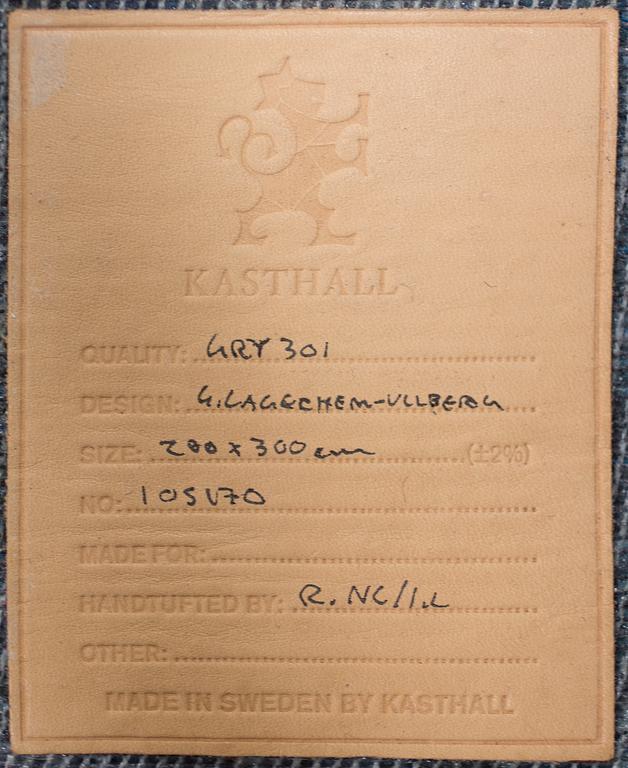 KASTHALL
QUALITY: GRY 301
DESIGN: G. LAGERHEM-ULLBERG
SIZE: 200 x 300 cm (±2%)
NO:
MADE FOR:
HANDTUFTED BY: R. NC/I.L
OTHER:
MADE IN SWEDEN BY KASTHALL